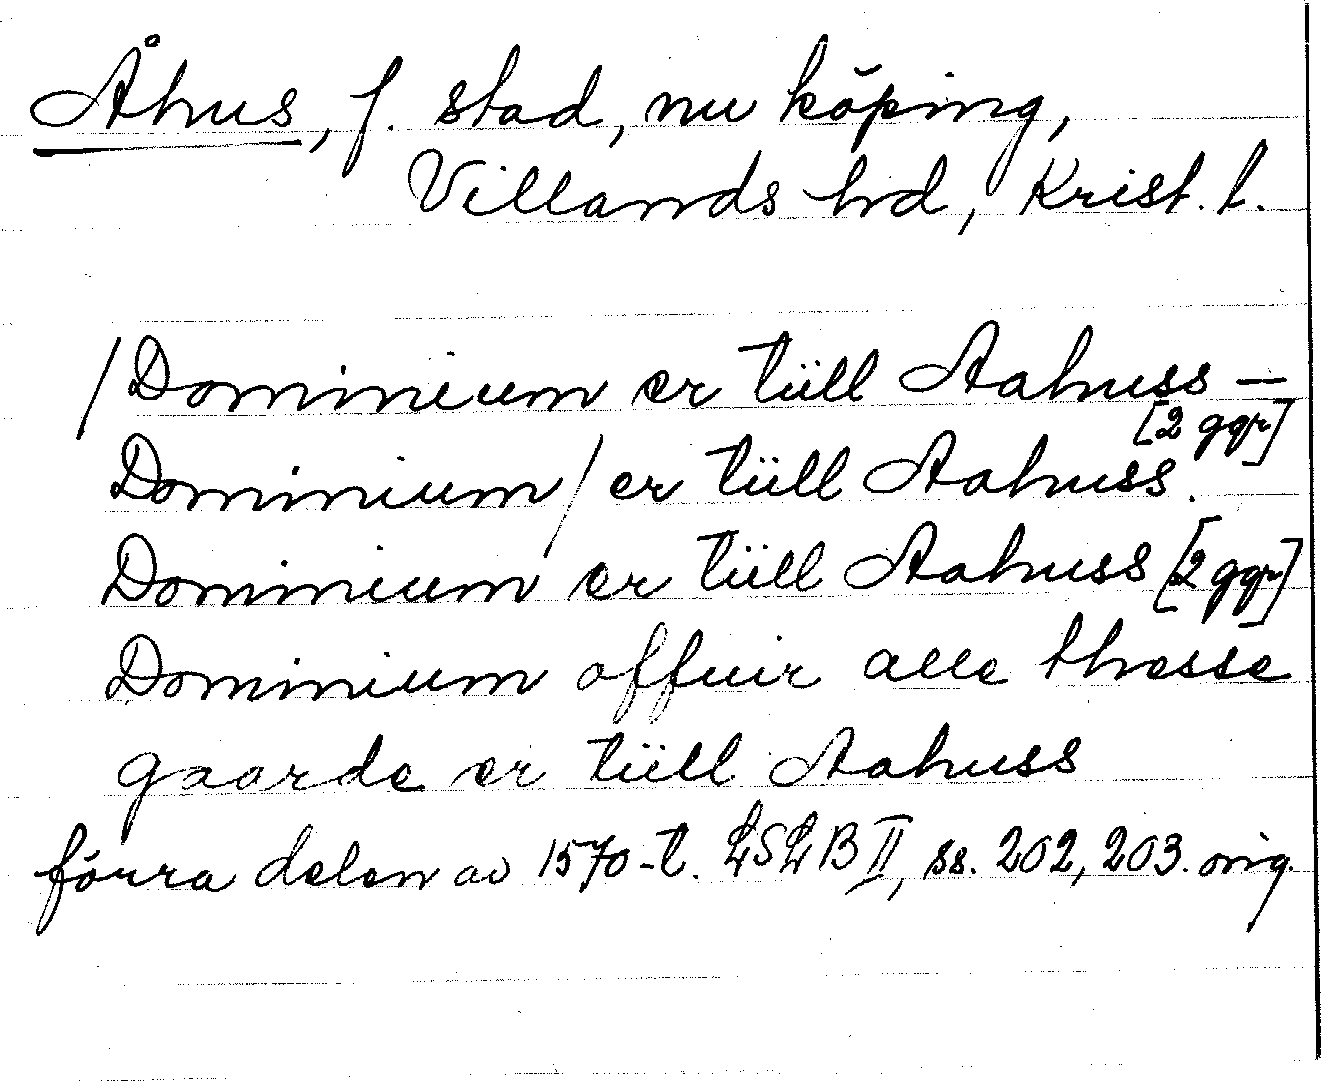 Åhus, f. stad, nu köping,
Villands hd, Krist. l.
/Dominium er tüll Aahuss —
[2 ggr]
Dominium/ er tüll Aahuss.
Dominium er tüll Aahuss [2 ggr]
Dominium offuir alle thesse
gaarde er tüll Aahuss
förra delen av 1570-t. LSLB II, ss. 202, 203. orig.